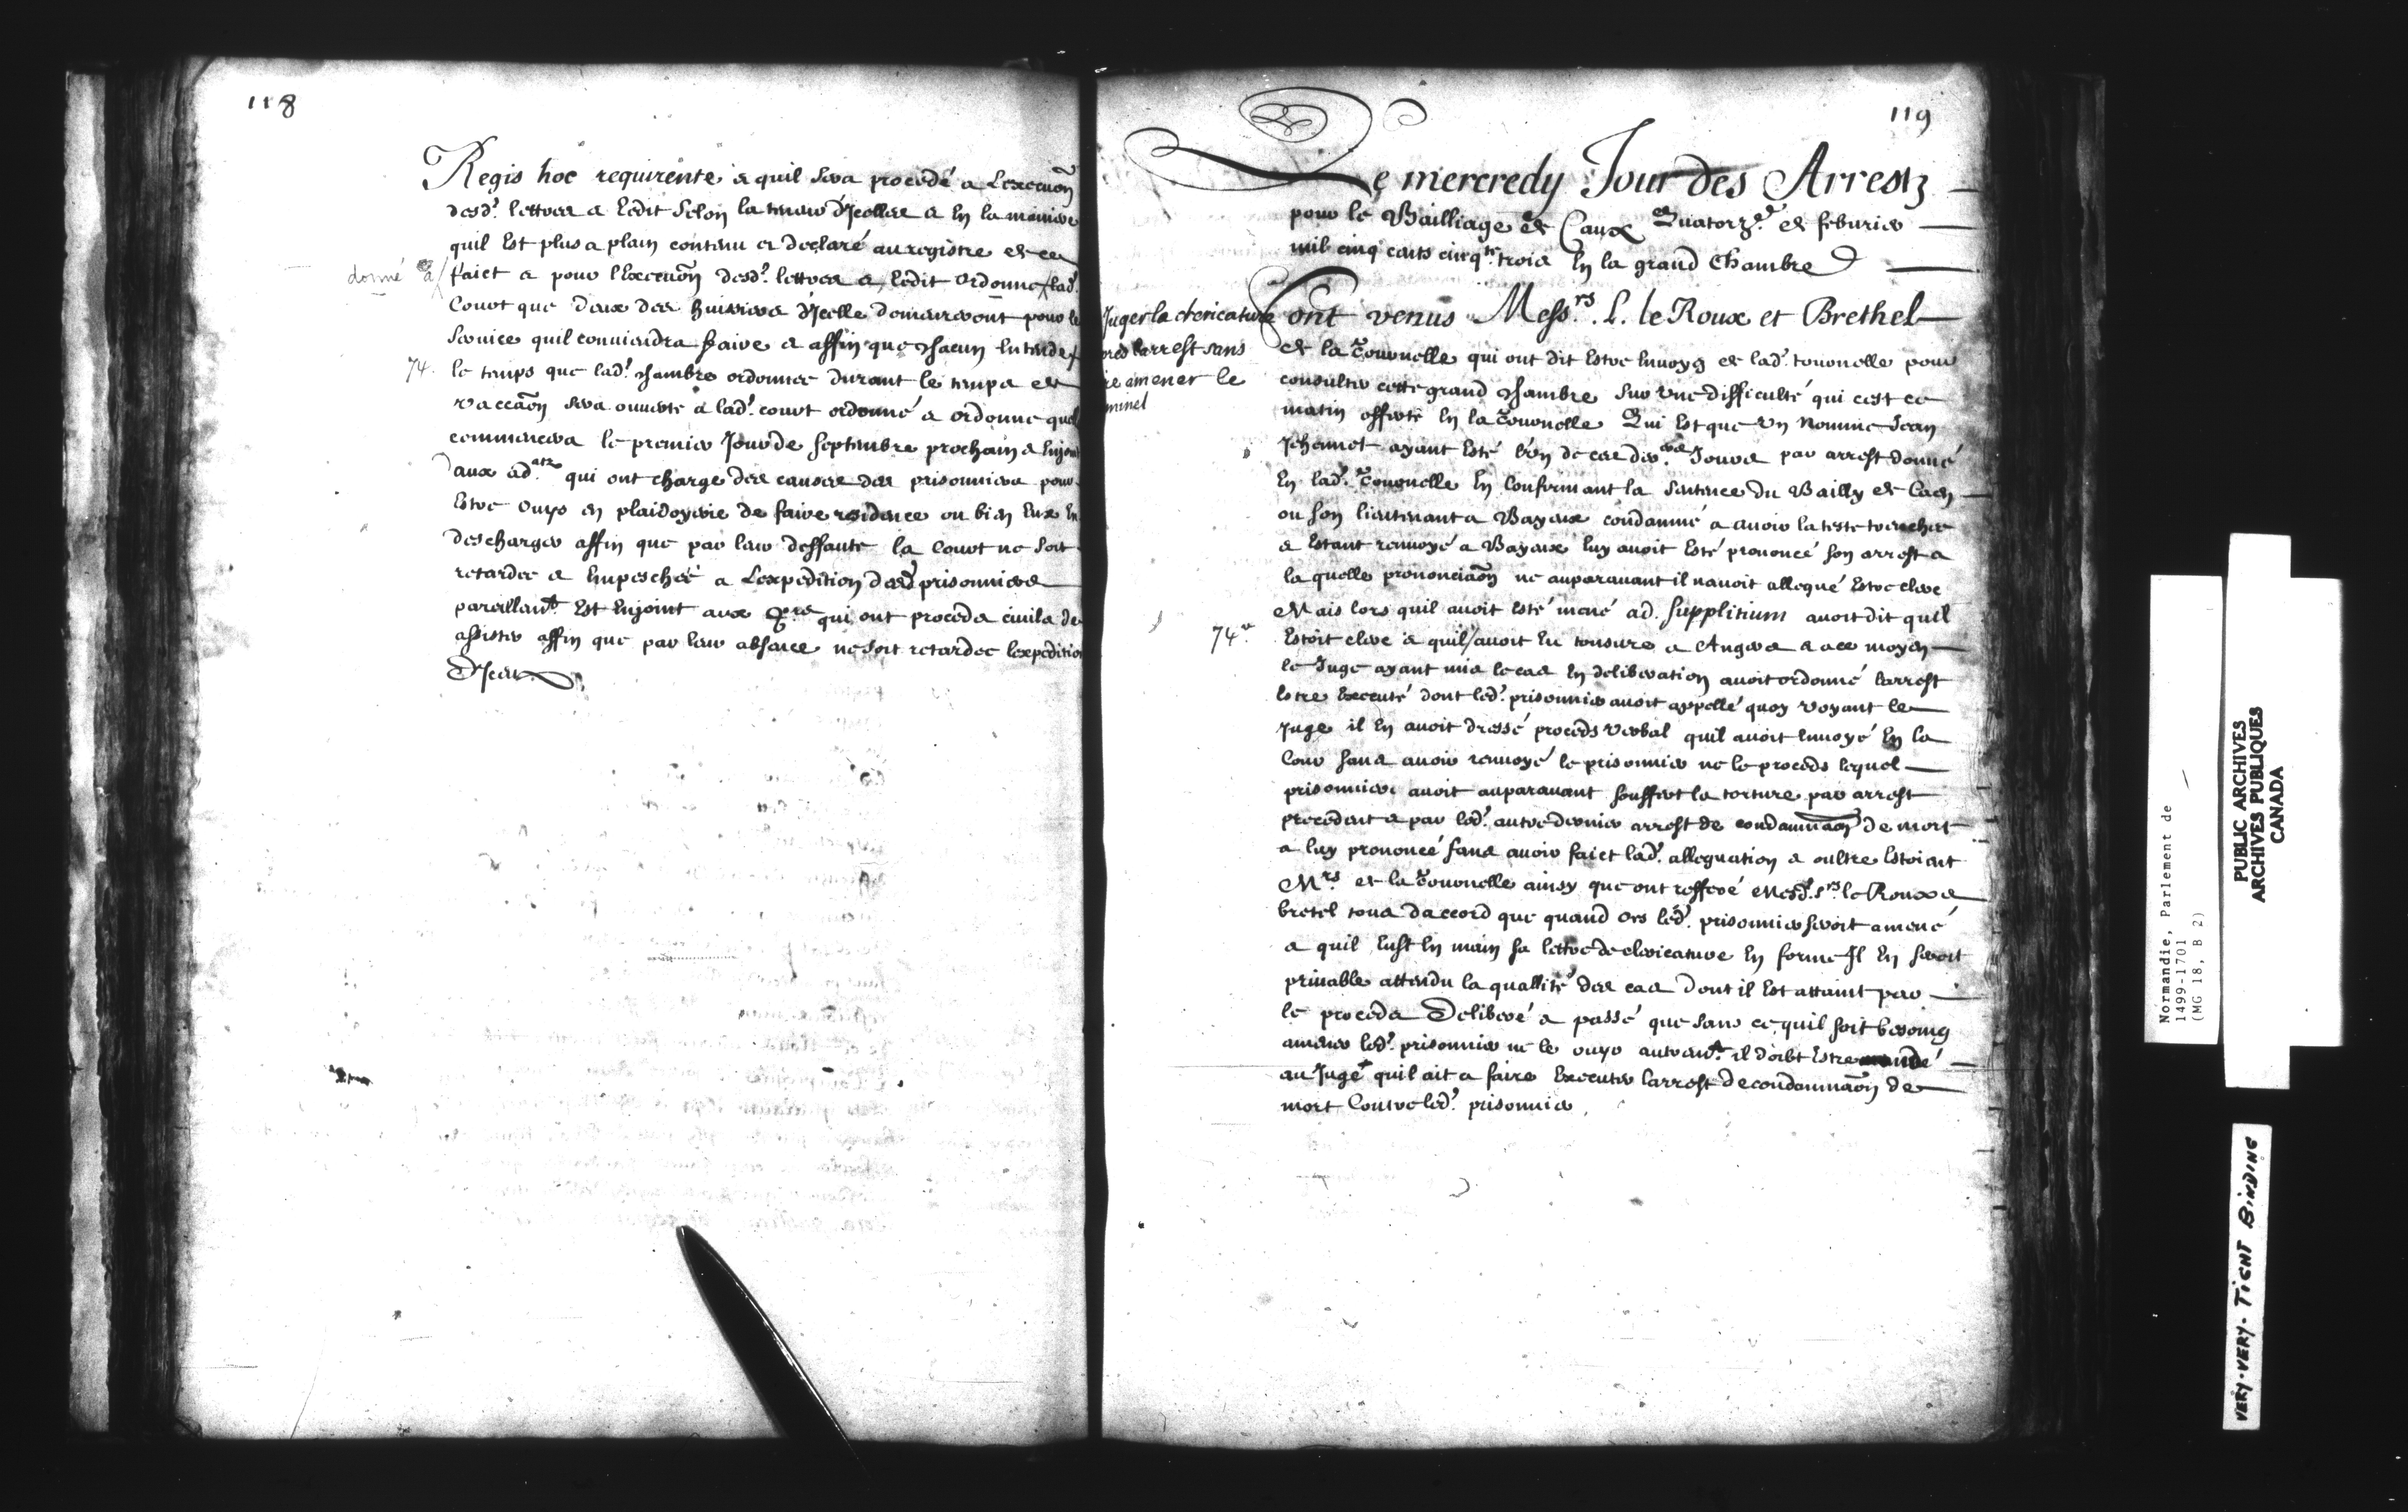 118
Regis hoc requirente & quil sera procedé a Lexecuõn
desd. lettres & ledit selon la teneur d'Jcelles & en la maniere
quil est plus a plain contenu et declaré au registre de ce
donné a/ faict & pour l'Execuõn desd. lettres & ledit ordonne lad.
Court que deux des huissiers d'Jcelle demeureront pour le
service quil conviendra faire & affin que chacun entende
74. le temps que lad. chambre ordonnee durant le temps de
vaccaõn sera ouverte a lad. court ordonné & ordonne quel
commencera le premier Jour de septembre prochain & enjoint
aux adatz qui ont charge des causes des prisonniers pour
Estre ouys en plaidoyerie de faire residence ou bien eux en
descharger affin que par leur deffaute la Court ne soit
retardee & Empeschée a Lexpedition desd prisonniers
pareillant Est Enjoint aux qui ont procedz civilz de
assister affin que par leur absence ne soit retardee lexpedition
D'Jceux
119
Le mercredy Jour des Arrestz
pour le Bailliage de Caux Quatorze de febvrier
mil cinq cents cinqte trois En la grand Chambre
Juger la clericature
pres larrest sans
re amener le
minel
Sont venus Messrs. L. le Roux et Brethel
de la Tournelle qui ont dit Estre Envoyes de lad. tournelle pour
consulter cette grand chambre sur une difficulté qui cest ce
matin offerte En la Tournelle Qui Est que un nommé Jean
Jehennet ayant Esté l'un de ces ders Jours par arrest donné
En lad. Tournelle En Confirmant la sentence du Bailly de Caen
ou son lieutenant a Bayeux condamné a avoir la teste trenchee
& Estant renvoyé a Bayeux luy avoit Esté prononcé son arrest a
la quelle prononciaõn ne auparavant il navoit allegué Estre clerc
Mais lors quil avoit esté mené ad. supplitium avoit dit quil
74.v Estoit clerc & quil avoit Eu tonsure a Angers & a ce moyen
le Juge ayant mis le cas En deliberation avoit ordonné larrest
Estre Executé dont led. prisonnier avoit appellé quoy voyant le
Juge il En avoit dressé proceds verbal quil avoit Envoyé En la
Cour sans avoir renvoyé le prisonnier ne le proceds lequel
prisonnier avoit auparavant souffert la torture par arrest
precedent & par led. autre dernier arrest de condamnaõn de mort
a luy prononcé sans avoir faict lad. allegation & oultre Estoient
Mrs. de la Tournelle ainsy que ont refferé Mesd. srs. le Roux &
bretel tous daccord que quand ores led. prisonnier seroit amené
& quil Eust En main sa lettre de clericature En forme Jl En seroit
privable attendu la quallité des cas dont il Est attaint par
le procedz Deliberé & passé que sans ce quil soit besoing
amener led. prisonnier ne le ouyr autremt. il doibt Estre mandé
au Juge quil ait a faire Executer larrest de condamnaõn de
mort Contre led. prisonnier
Normandie, Parlement de
1499-1701
(MG 18, B 2)
PUBLIC ARCHIVES
ARCHIVES PUBLIQUES
CANADA
VERY-VERY-TIGHT BINDING